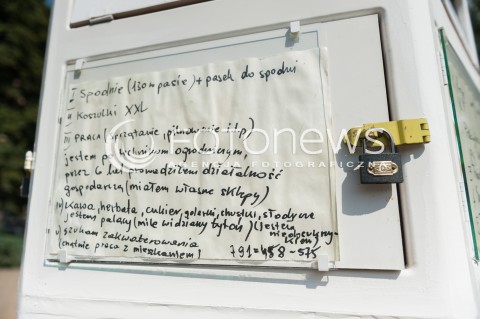 I Spodnie (130 w pasie) + pasek do spodni
II Koszulki XXL
III PRACA (sprzątanie, pilnowanie itp)
jestem po technikum ogrodniczym,
przez 6 lat prowadziłem działalność
gospodarczą (miałem własne sklepy)
IV Kawa, herbata, cukier, golarki, chustki, słodycze
jestem palący (mile widziany tytoń) (jestem
niealkoholikiem)
V szukam zakwaterowania
(chętnie praca z mieszkaniem) 791-458-575
FOTONEWS
AGENCJA FOTOGRAFICZNA